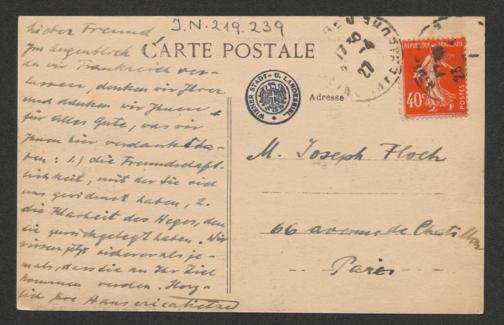 J.N. 219.239
CARTE POSTALE
Adresse
WIENER STADT- U. LANDESBIBL.
REPUBLIQUE
40c
POSTES
27
lieber Freund
Im Augenblick
da wir Frankreich ver-
lassen, denken wir Ihrer
und danken wir Ihnen
für alles Gute, das wir
Ihnen hier verdankt ha-
ben: 1.) die Freundschaft-
lichkeit, mit der Sie sich
uns gewidmet haben, 2.
die Klarheit des Weges, den
Sie zurückgelegt haben. Wir
wissen jetzt sicherer als je-
mals, dass Sie an Ihr Ziel
kommen werden. Herz-
lich Ihre Hans erica Tietze
M. Joseph Floch
66 avenue de Chatillon
Paris